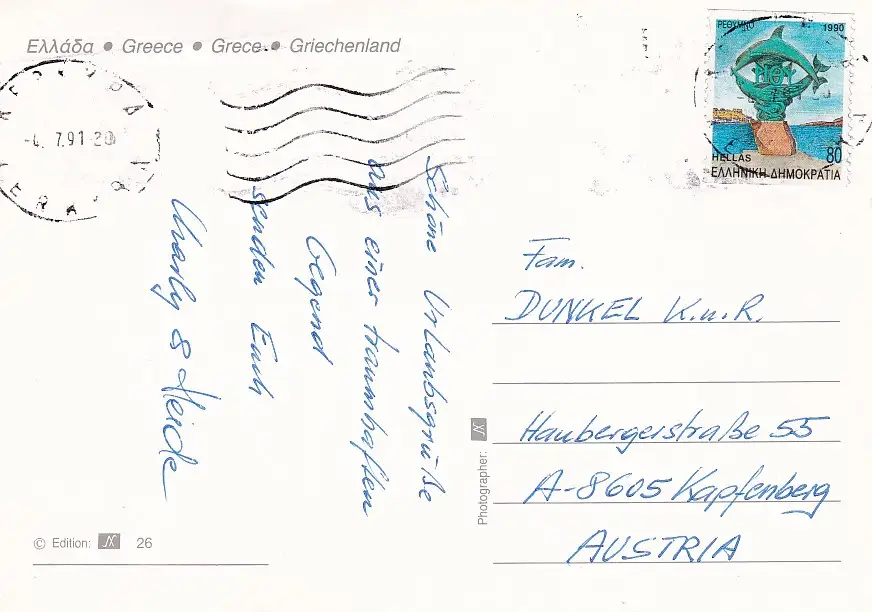 Ελλάδα • Greece • Grece • Griechenland
ΡΕΘΥΜΝΟ 1990
HELLAS 80
ΕΛΛΗΝΙΚΗ ΔΗΜΟΚΡΑΤΙΑ
-4. 7.91-20
Schöne Urlaubsgrüße
aus einer traumhaften
Gegend
senden Euch
Charly & Heide
Fam.
DUNKEL K.u.R.
Haubergerstraße 55
A-8605 Kapfenberg
AUSTRIA
Photographer: N
© Edition: N 26